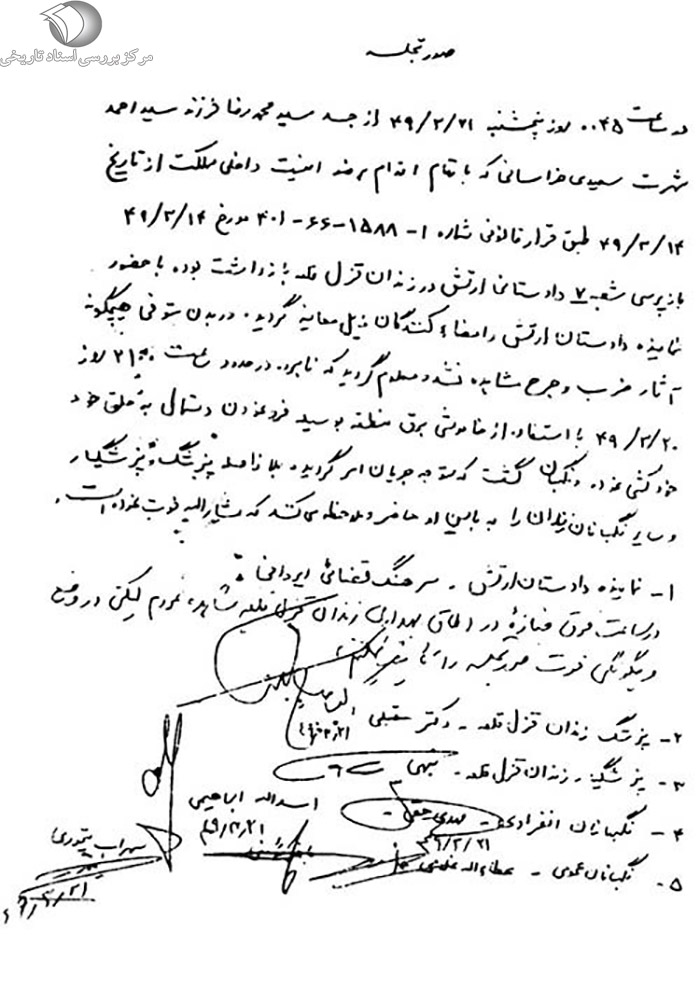 مرکز بررسی اسناد تاریخی
صورتجلسه
در ساعت ۰۰۴۵ روز پنجشنبه ۴۹/۳/۲۱ از جسد سید محمدرضا فرزند سید احمد
شهرت سعیدی خراسانی که باتهام اقدام برضد امنیت داخلی مملکت از تاریخ
۴۹/۳/۱۴ طبق قرار قانونی شماره ۱-۱۵۸۸-۶۶-۴۰۱ مورخ ۴۹/۳/۱۴
بازپرسی شعبه ۷ دادستانی ارتش در زندان قزل قلعه بازداشت بوده با حضور
نماینده دادستان ارتش و امضاء کنندگان ذیل معاینه گردید. در بدن متوفی هیچگونه
آثار ضرب و جرح مشاهده نشد و معلوم گردید که نامبرده در حدود ساعت ۲۱۰۰ روز
۴۹/۳/۲۰ با استفاده از خاموشی برق منطقه بوسیله فرو نمودن دستمال به حلق خود
خودکشی نموده و نگهبان گشت که متوجه جریان امر گردیده بلافاصله پزشک و پزشکیار
و سایر نگهبانان زندان را به بالین او حاضر و ملاحظه می کنند که مشارالیه فوت نموده است.
۱- نماینده دادستان ارتش - سرهنگ قضائی ایردانی :
در ساعت فوق جنازه در اطاق بهداری زندان قزل قلعه مشاهده نمودم لیکن در وضع
و چگونگی فوت صورتجلسه را
۲- پزشک زندان قزل قلعه - دکتر
۳- پزشکیار زندان قزل قلعه -
۴- نگهبانان انفرادی -
۴۹/۳/۲۱
اسداله ابراهیمی
۴۹/۳/۲۱
۵- نگهبانان عمومی - عطاءاله
سهراب
۴۹/۳/۲۱